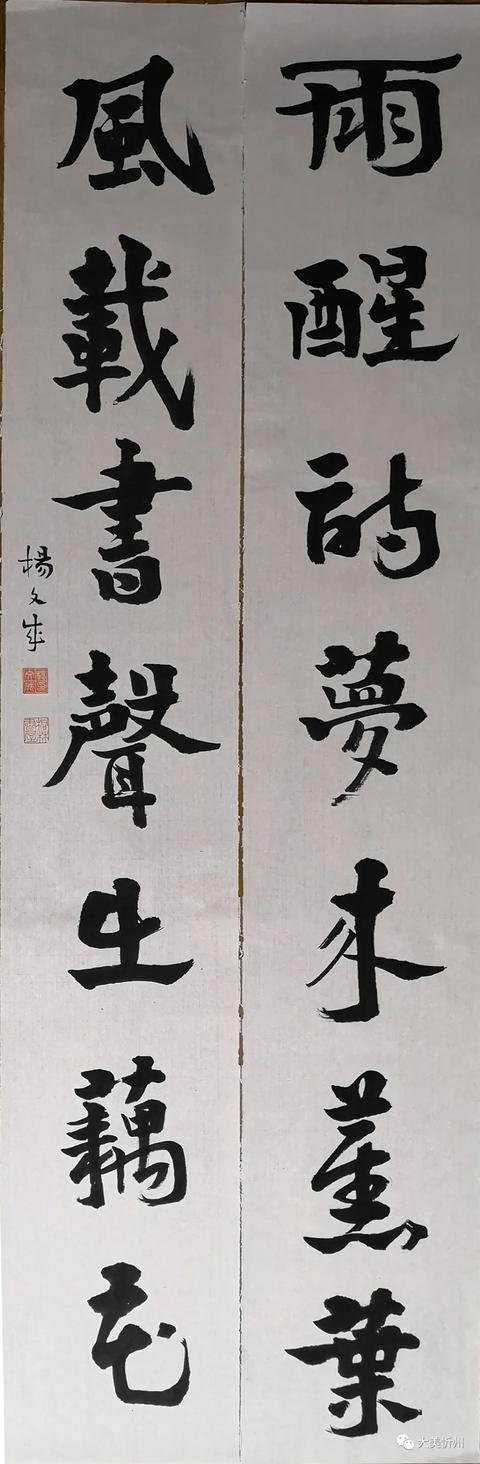 雨醒詩夢來蕉葉
風載書聲出藕花
楊文成
大美忻州